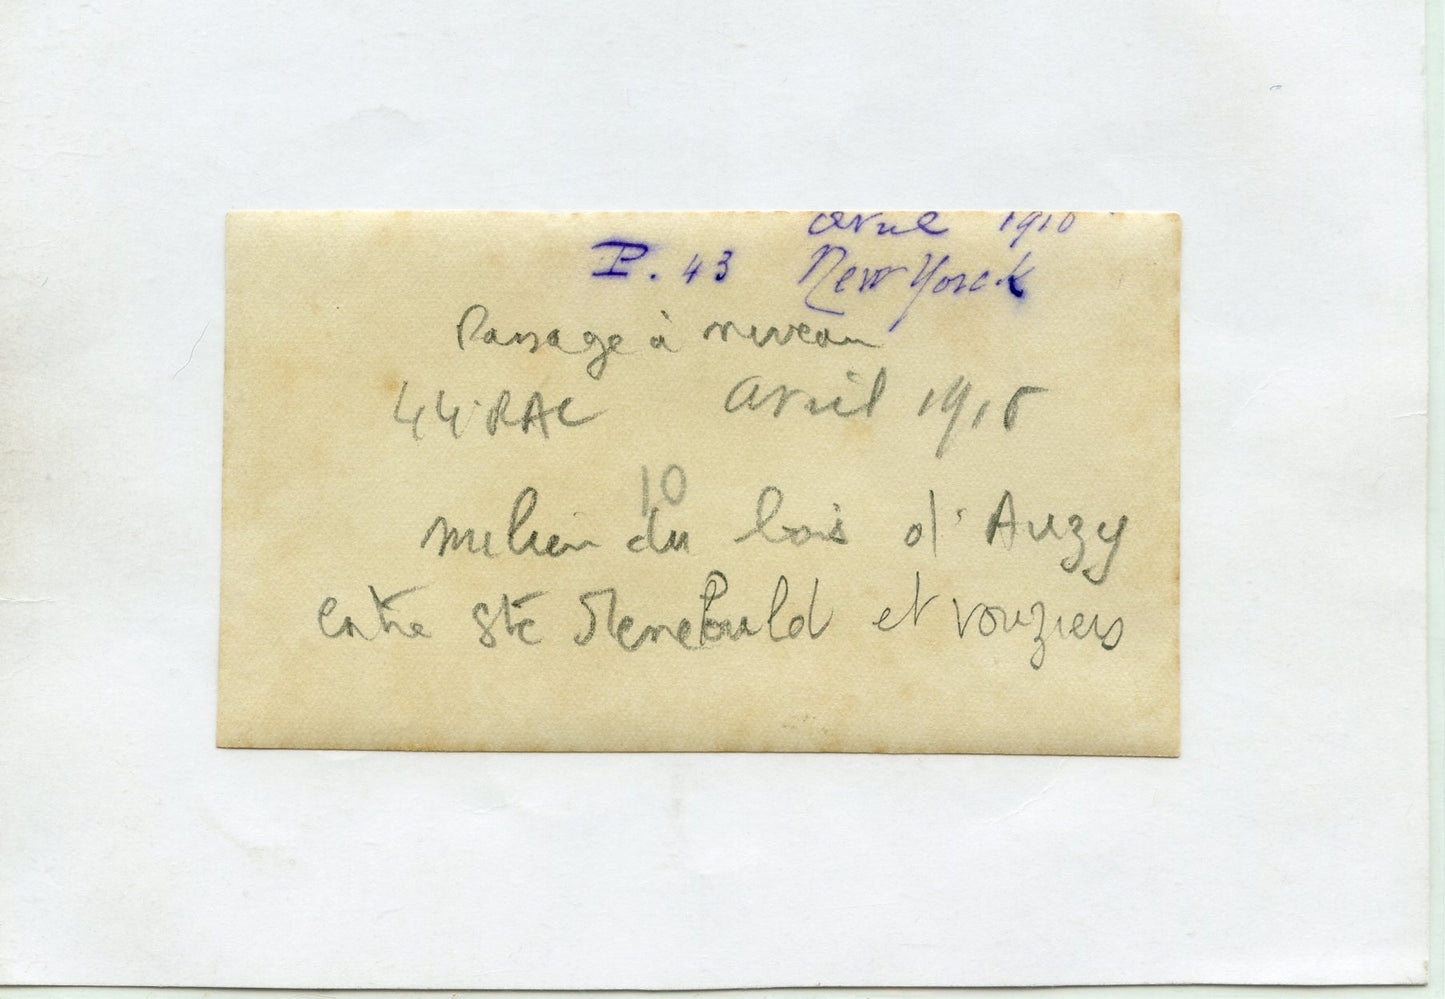 avril 1910
P. 43 New Yorck
Passage à niveau
44 RAC avril 1915
10
milieu du bois d'Auzy
entre Ste Menehould et vouziers